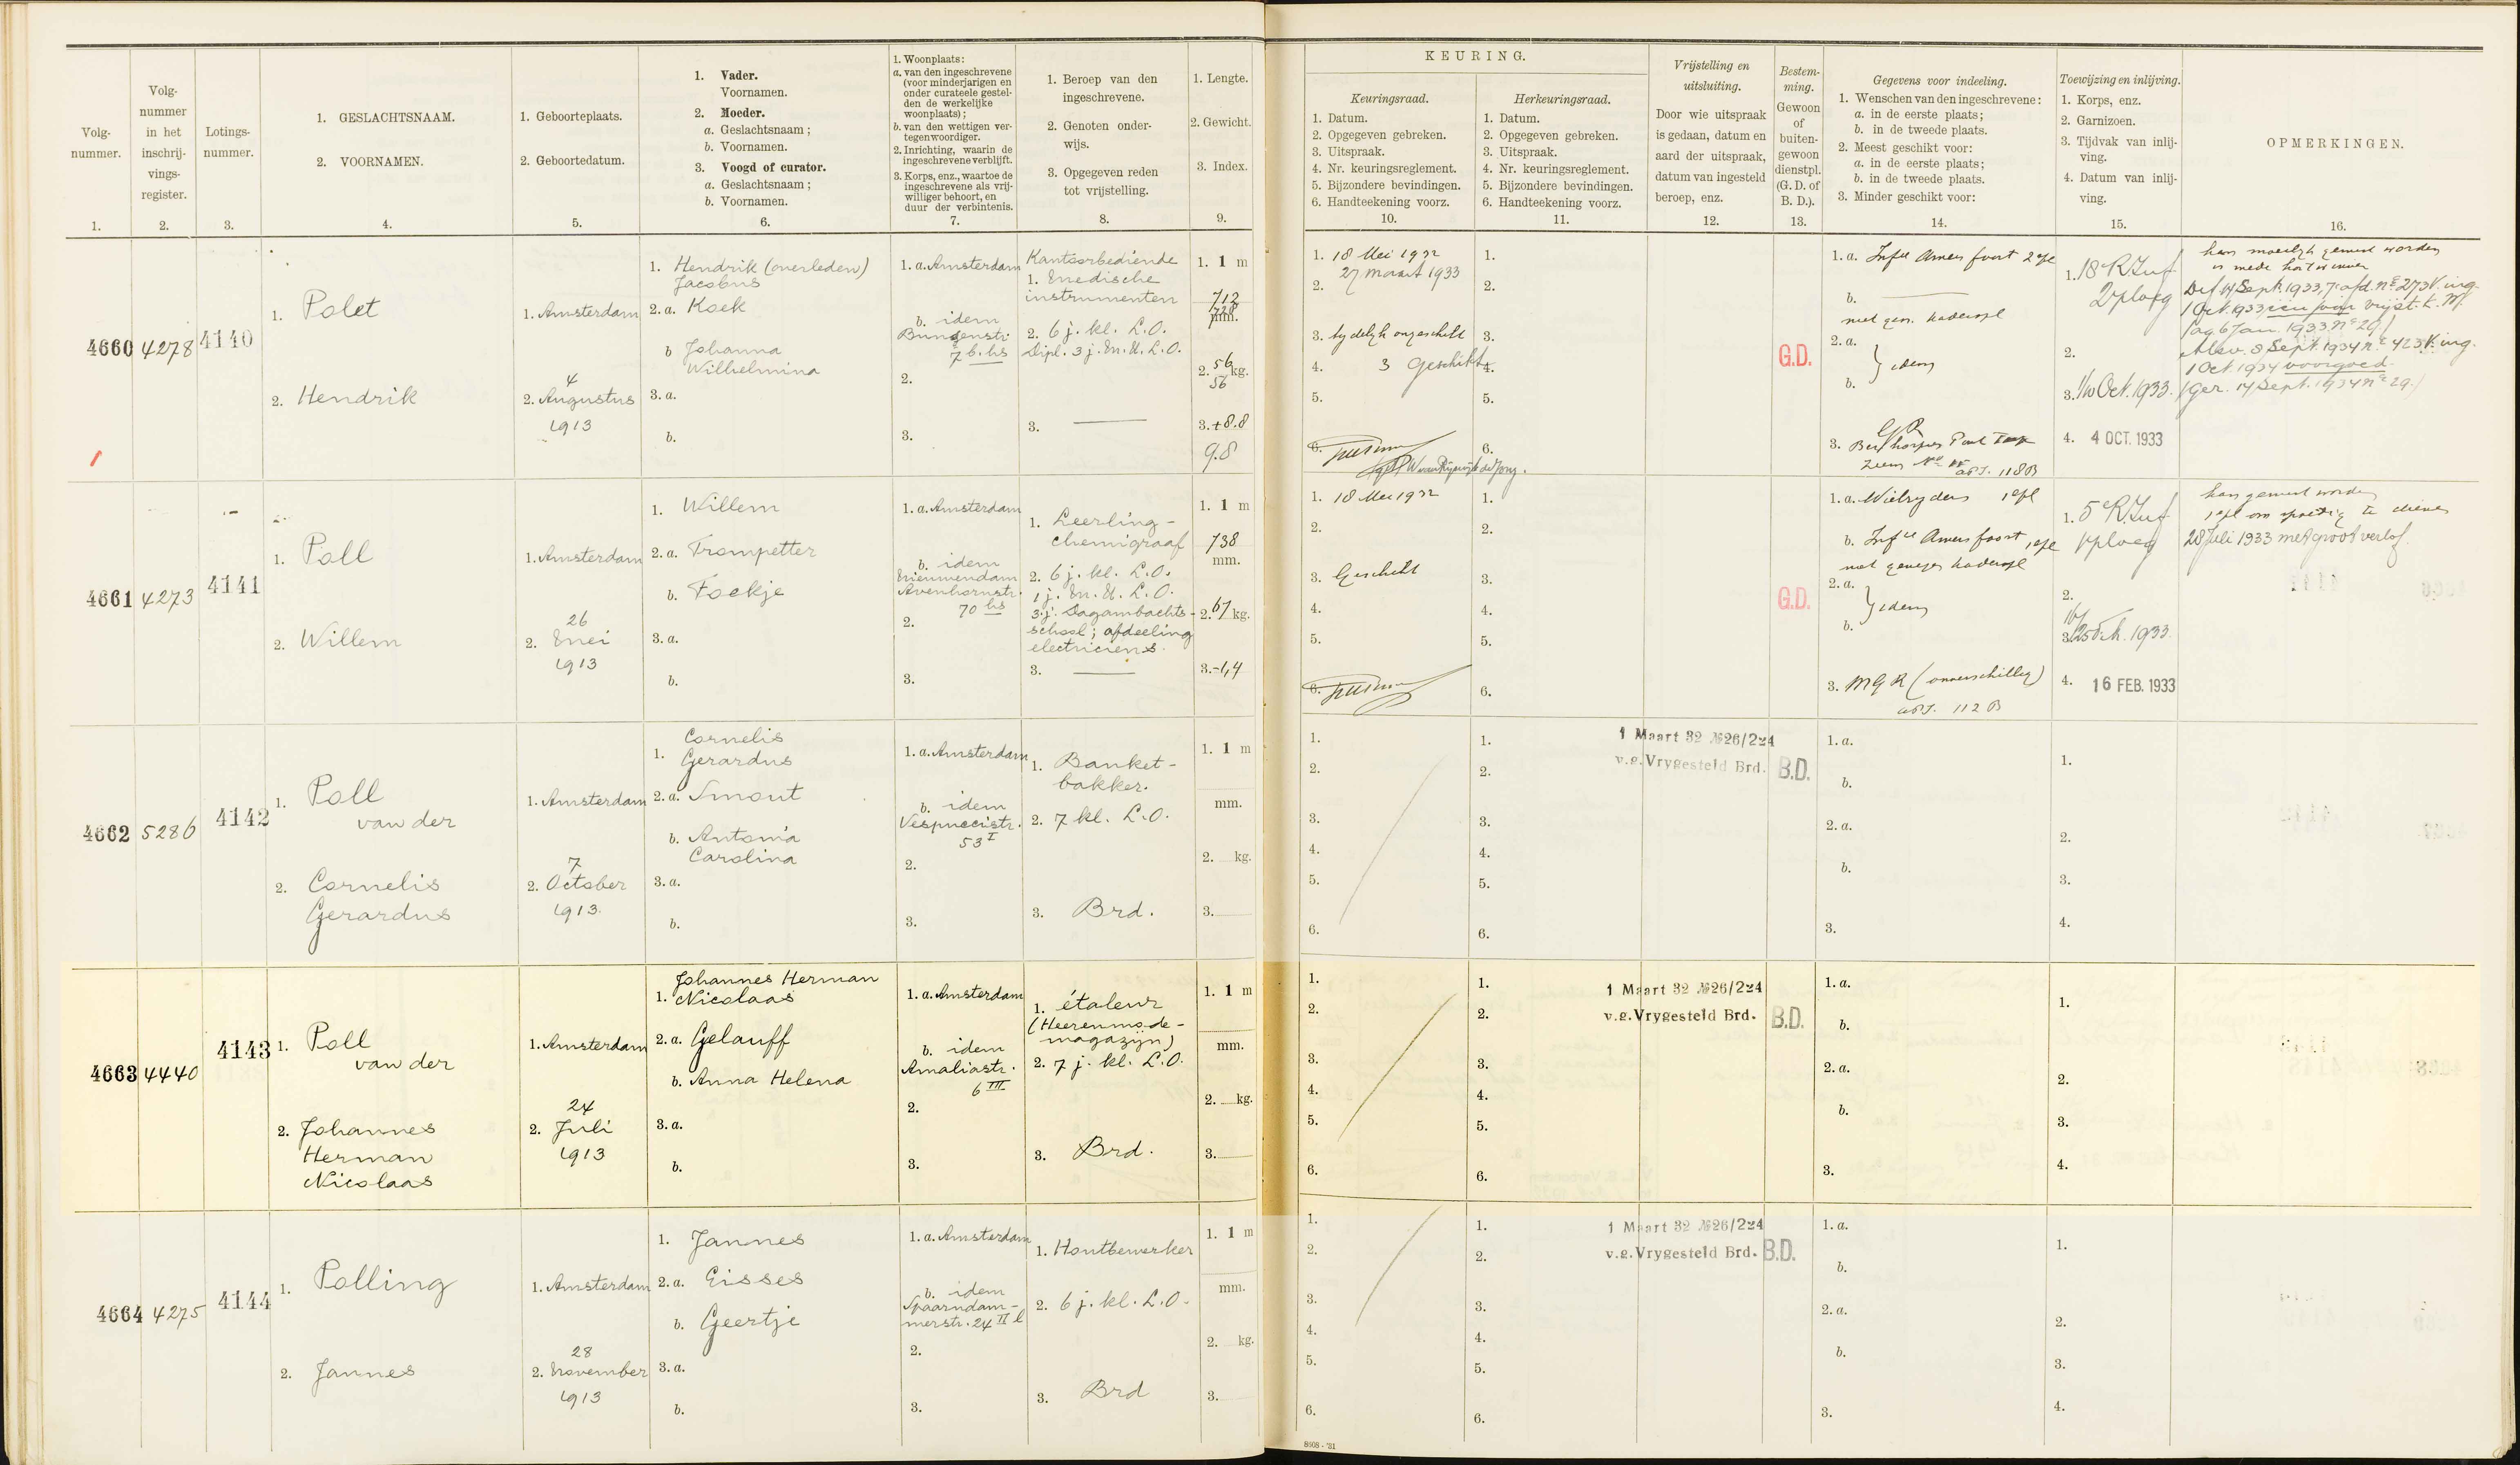 Volg-
nummer.
1.
Volg-
nummer
in het
inschrij-
vings-
register.
2.
Lotings-
nummer.
3.
1. GESLACHTSNAAM.
2. VOORNAMEN.
4.
1. Geboorteplaats.
2. Geboortedatum.
5.
1. Vader.
Voornamen.
2. Moeder.
a. Geslachtsnaam;
b. Voornamen.
3. Voogd of curator.
a. Geslachtsnaam;
b. Voornamen.
6.
1. Woonplaats:
a. van den ingeschrevene
(voor minderjarigen en
onder curateele gestel-
den de werkelijke
woonplaats);
b. van den wettigen ver-
tegenwoordiger.
2. Inrichting, waarin de
ingeschrevene verblijft.
3. Korps, enz., waartoe de
ingeschrevene als vrij-
williger behoort, en
duur der verbintenis.
7.
1. Beroep van den
ingeschrevene.
2. Genoten onder-
wijs.
3. Opgegeven reden
tot vrijstelling.
8.
1. Lengte.
2. Gewicht.
3. Index.
9.
KEURING.
Keuringsraad.
1. Datum.
2. Opgegeven gebreken.
3. Uitspraak.
4. Nr. keuringsreglement.
5. Bijzondere bevindingen.
6. Handteekening voorz.
10.
Herkeuringsraad.
1. Datum.
2. Opgegeven gebreken.
3. Uitspraak.
4. Nr. keuringsreglement.
5. Bijzondere bevindingen.
6. Handteekening voorz.
11.
Vrijstelling en
uitsluiting.
Door wie uitspraak
is gedaan, datum en
aard der uitspraak,
datum van ingesteld
beroep, enz.
12.
Bestem-
ming.
Gewoon
of
buiten-
gewoon
dienstpl.
(G. D. of
B. D.).
13.
Gegevens voor indeeling.
1. Wenschen van den ingeschrevene:
a. in de eerste plaats;
b. in de tweede plaats.
2. Meest geschikt voor:
a. in de eerste plaats;
b. in de tweede plaats.
3. Minder geschikt voor:
14.
Toewijzing en inlijving.
1. Korps, enz.
2. Garnizoen.
3. Tijdvak van inlij-
ving.
4. Datum van inlij-
ving.
15.
OPMERKINGEN.
16.
4660 4278 4140
1. Polet
2. Hendrik
1. Amsterdam
2. 4 Augustus
1913
1. Hendrik (overleden)
Jacobus
2. a. Koek
b Johanna
Wilhelmina
3. a.
b.
1. a. Amsterdam
b. idem
7 b. hs
2.
3.
Kantoorbediende
1. Medische
instrumenten
2. 6 j. kl. L.O.
Dipl. 3 j. M.U.L.O.
3. —
1. 1 m
712
728
mm.
2. 56 kg.
56
3. +8.8
9.8
1. 18 Mei 1932
27 maart 1933
2.
3. tydelyk ongeschikt
4. 3 Geschikt
5.
6.
1.
2.
3.
4.
5.
6.
G.D.
1. a. Infie Amersfoort 2 pl
b. —
niet gen. kaderopl
2. a.
} idem
b.
3.
1. 18 R.Inf
2 ploeg
2.
3. 1/10 Oct. 1933.
4. 4 OCT. 1933
kan moeilyk gemist worden
is mede kostwinner
Def 14 Sept. 1933, 7e afd. no 273 V. ing.
1 Oct. 1933 een jaar vrijst. k. W.
(ag 6 Jan. 1933 no 29)
8 Sept. 1934 no 423 V. ing.
1 Oct 1934 voorgoed.
(Ger. 14 Sept. 1934 no 29.)
4661 4273 4141
1. Poll
2. Willem
1. Amsterdam
2. 26 Mei
1913
1. Willem
2. a. Trompetter
b. Foekje
3. a.
b.
1. a. Amsterdam
b. idem
Nieuwendam
Avenhornstr.
70 hs
2.
3.
1. Leerling-
chemigraaf
2. 6 j. kl. L.O.
1 j. M.U.L.O.
3 j. Dagambachts-
school; afdeeling
electriciens.
3. —
1. 1 m
738
mm.
2. 67 kg.
3. -1,4
1. 18 Mei 1932
2.
3. Geschikt
4.
5.
6.
1.
2.
3.
4.
5.
6.
G.D.
1. a. Wielryders 1 pl
b. Infie Amersfoort 1 pl
niet genegen kaderopl
2. a.
} idem
b.
3. M G R (onverschillig)
1. 5 R.Inf
1 ploeg
2.
3. 16/25 Feb. 1933.
4. 16 FEB. 1933
kan gemist worden
1 pl om spoedig te dienen
28 Juli 1933 met groot verlof.
4662 5286 4142
1. Poll
van der
2. Cornelis
Gerardus
1. Amsterdam
2. 7 October
1913.
1. Cornelis
Gerardus
2. a. Smout
b. Antonia
Carolina
3. a.
b.
1. a. Amsterdam
b. idem
Vespuccistr.
53 I
2.
3.
1. Banket-
bakker.
2. 7 kl. L.O.
3. Brd.
1. 1 m
mm.
2. kg.
3.
1.
2.
3.
4.
5.
6.
1.
2.
3.
4.
5.
6.
1 Maart 32 №26/224
v.g. Vrygesteld Brd.
B.D.
1. a.
b.
2. a.
b.
3.
1.
2.
3.
4.
4663 4440 4143
1. Poll
van der
2. Johannes
Herman
Nicolaas
1. Amsterdam
2. 24 Juli
1913
Johannes Herman
1. Nicolaas
2. a. Gelauff
b. Anna Helena
3. a.
b.
1. a. Amsterdam
b. idem
Amaliastr.
6 III
2.
3.
1. étaleur
(Heerenmode-
magazijn)
2. 7 j. kl. L.O.
3. Brd.
1. 1 m
mm.
2. kg.
3.
1.
2.
3.
4.
5.
6.
1.
2.
3.
4.
5.
6.
1 Maart 32 №26/224
v.g. Vrygesteld Brd.
B.D.
1. a.
b.
2. a.
b.
3.
1.
2.
3.
4.
4664 4275 4144
1. Polling
2. Jannes
1. Amsterdam
2. 28 November
1913
1. Jannes
2. a. Eisses
b. Geertje
3. a.
b.
1. a. Amsterdam
b. idem
Spaarndam-
merstr. 24 II l
2.
3.
1. Houtbewerker
2. 6 j. kl. L.O.
3. Brd
1. 1 m
mm.
2. kg.
3.
1.
2.
3.
4.
5.
6.
1.
2.
3.
4.
5.
6.
1 Maart 32 №26/224
v.g. Vrygesteld Brd.
B.D.
1. a.
b.
2. a.
b.
3.
1.
2.
3.
4.
8808 - '31